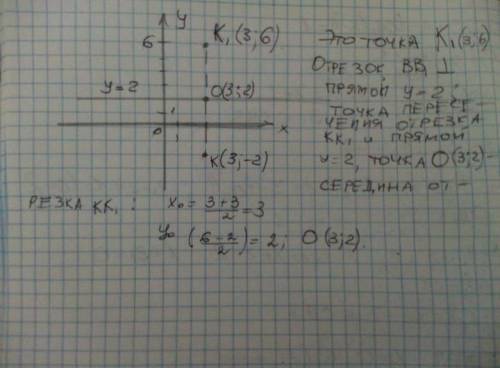 y
6
K₁(3;6)
y=2
O(3;2)
1
0
1
x
K(3;-2)
Это точка K₁(3;6)
Отрезок BB₁ ⊥
прямой y=2;
точка пересе-
чения отрезка
KK₁ и прямой
y=2, точка O(3;2)-
середина от-
резка KK₁: x₀ = 3+3/2 = 3
y₀ (6-2/2) = 2; O(3;2).